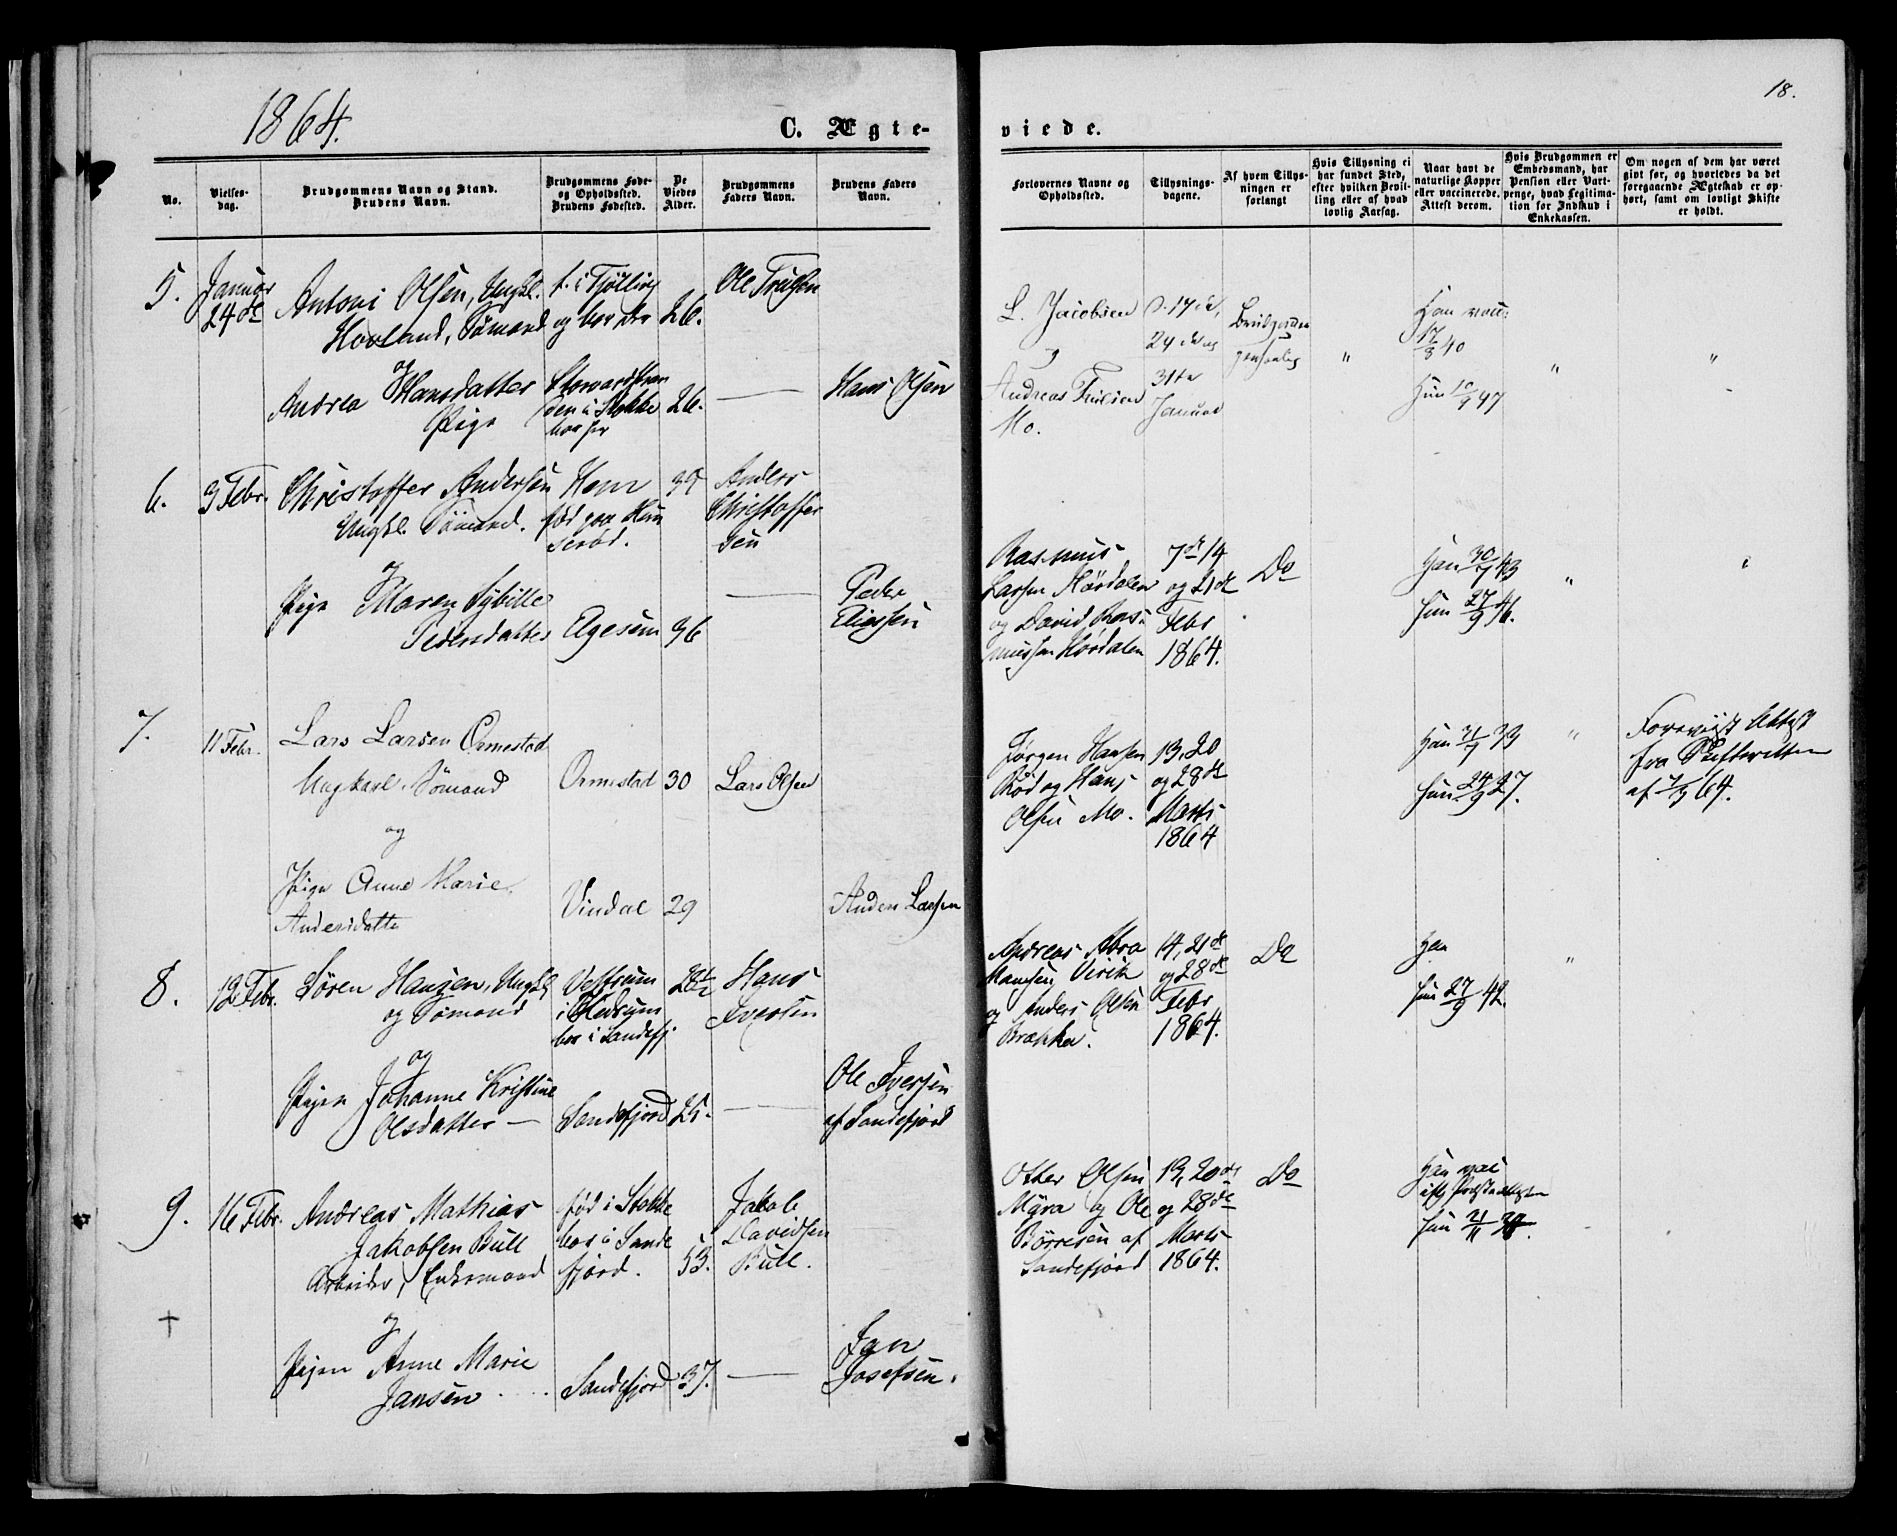 1864.
18.
C. Ægte-
viede.
No.
Vielses-
dag.
Brudgommens Navn og Stand.
Brudens Navn.
Brudgommens Føde-
og Opholdssted.
Brudens Fødested.
De
Viedes
Alder.
Brudgommens
Faders Navn.
Brudens Faders
Navn.
Forlovernes Navne og
Opholdssted.
Tillysnings-
dagene.
Af hvem Tillys-
ningen er
forlangt
Hvis Tillysning ei
har fundet Sted,
efter hvilken Bevil-
ling eller af hvad
lovlig Aarsag.
Naar havt de
naturlige Kopper
eller vaccinerede.
Attest derom.
Hvis Brudgommen er
Embedsmand, har
Pension eller Vart-
penge, hvad Legitima-
tion for Indskud i
Enkekassen.
Om nogen af dem har været
givt før, og hvorledes da det
foregaaende Ægteskab er op-
hørt, samt om lovligt Skifte
er holdt.
5.
Januar
24de
Antoni Olsen, Ungkl.
Hovland, Sømand
f. i Tjølling
og bor der
26.
Ole
L. Jacobsen
17de,
24de og
31te
Januar
Han vac:
17/8 40
og
Andrea Hansdatter
Pige
den i Stokke
26.
Hans Olsen
Andreas
Mo.
Hun 10/9 47
6.
3 Febr.
Christoffer Andersen
Ungkl. Sømand.
Hem
født paa
Anders
Christoffer
sen
og
Pige Maren Sybille
Pedersdatter
36
Peder
Eliassen
Rasmus
Larsen Hørdalen
og David Ras-
mussen Hørdalen
7de 14
og 21de
Febr
1864.
Do
Han 30/7 43
Hun 27/9 46.
7.
11 Febr.
Lars Larsen Ormestad
Ungkarl. Sømand
Ormestad
30
Lars Olsen
og
Pige Anne Marie
Andersdatte
Vindal
29
Anders Larsen
Jørgen Hansen
Rød og Hans
Olsen Mo.
13, 20
og 28de
Marts
1864
Han 21/7 39
Hun 24/9 27.
Forevist Attest
fra Skifteretten
af 7/3 64.
8.
12 Febr.
Søren Hansen, Ungkl
og Sømand
i Hedrum
bor i Sandefj.
28 1/2
Hans
Iversen
og
Pigen Johanne Kristine
Olsdatter
Sandefjord
25.
Ole Iversen
af Sandefjord
Andreas Abra
hamsen Virik
og Anders Olsen
Brækka.
14, 21de
og 28de
Febr
1864.
Do
Han
Hun 27/9 42.
9.
16 Febr.
Andreas Mathias
Jakobsen Bull
Arbeider, Enkemand
født i Stokke
bor i Sande
fjord.
53.
Jakob
Davidsen
Bull.
†
og
Pigen Anne Marie
Jansen
Sandefjord
37.
Jan
Josefsen.
Otter Olsen
Myra og Ole
Børresen af
Sandefjord
13, 20de
og 28de
Marts
1864.
Do
Han vac